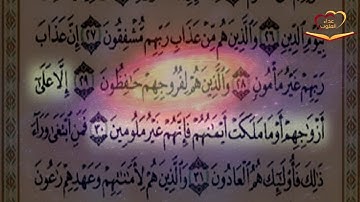 بِيَوْمِ الدِّينِ ٢٦ وَالَّذِينَ هُم مِّنْ عَذَابِ رَبِّهِم مُّشْفِقُونَ ٢٧ إِنَّ عَذَابَ
رَبِّهِمْ غَيْرُ مَأْمُونٍ ٢٨ وَالَّذِينَ هُمْ لِفُرُوجِهِمْ حَافِظُونَ ٢٩ إِلَّا عَلَىٰ
أَزْوَاجِهِمْ أَوْ مَا مَلَكَتْ أَيْمَانُهُمْ فَإِنَّهُمْ غَيْرُ مَلُومِينَ ٣٠ فَمَنِ ابْتَغَىٰ وَرَاءَ
ذَٰلِكَ فَأُولَٰئِكَ هُمُ الْعَادُونَ ٣١ وَالَّذِينَ هُمْ لِأَمَانَاتِهِمْ وَعَهْدِهِمْ رَاعُونَ